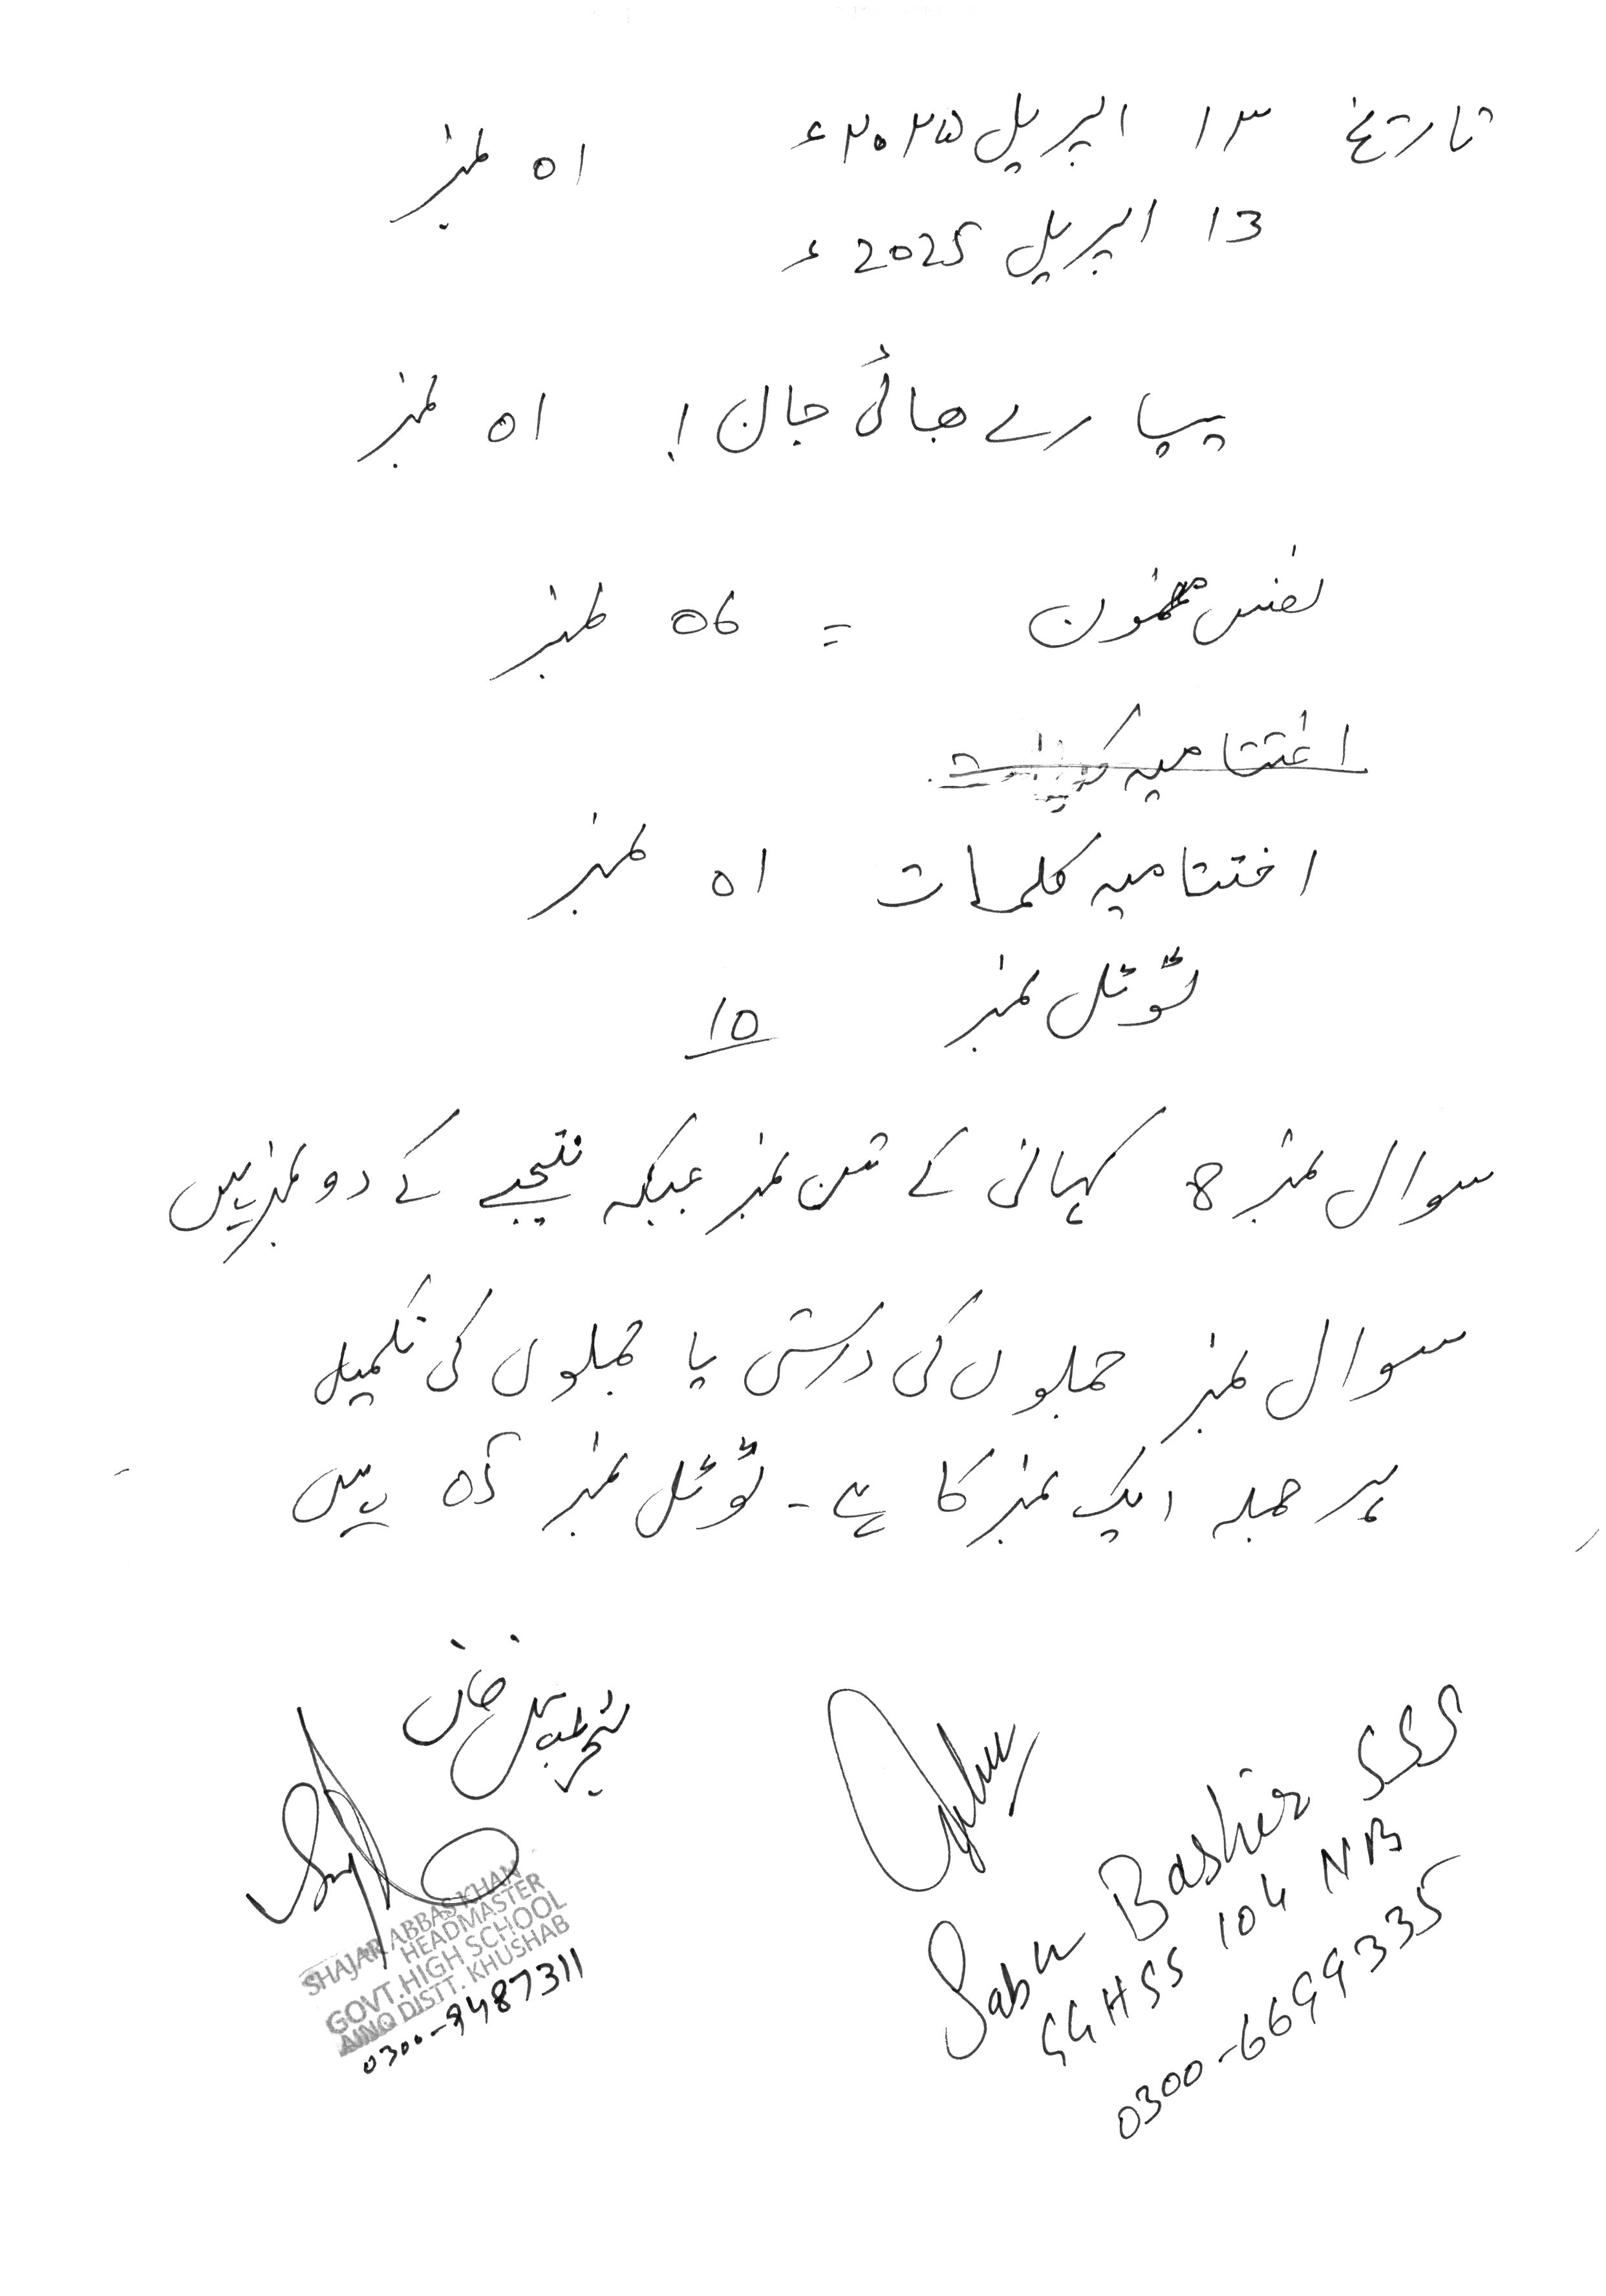 تاریخ ۱۳ اپریل ۲۰۲۵ء 01 نمبر
13 اپریل 2025ء
پیارے بھائی جان! 01 نمبر
نفس مضمون = 06 نمبر
اختتامیہ
اختتامیہ کلمات 01 نمبر
ٹوٹل نمبر 10
سوال نمبر 8 کہانی کے تین نمبر جبکہ نتیجے کے دو نمبر ہیں
سوال نمبر جملوں کی درستی یا جملوں کی تکمیل
ہر جملہ ایک نمبر کا ہے۔ ٹوٹل نمبر 05 ہیں
خان
SHAJAR ABBAS KHAN
HEADMASTER
GOVT. HIGH SCHOOL
DISTT. KHUSHAB
0300-9487311
Bashir SSS
GGHSS 104 NB
0300-6699335